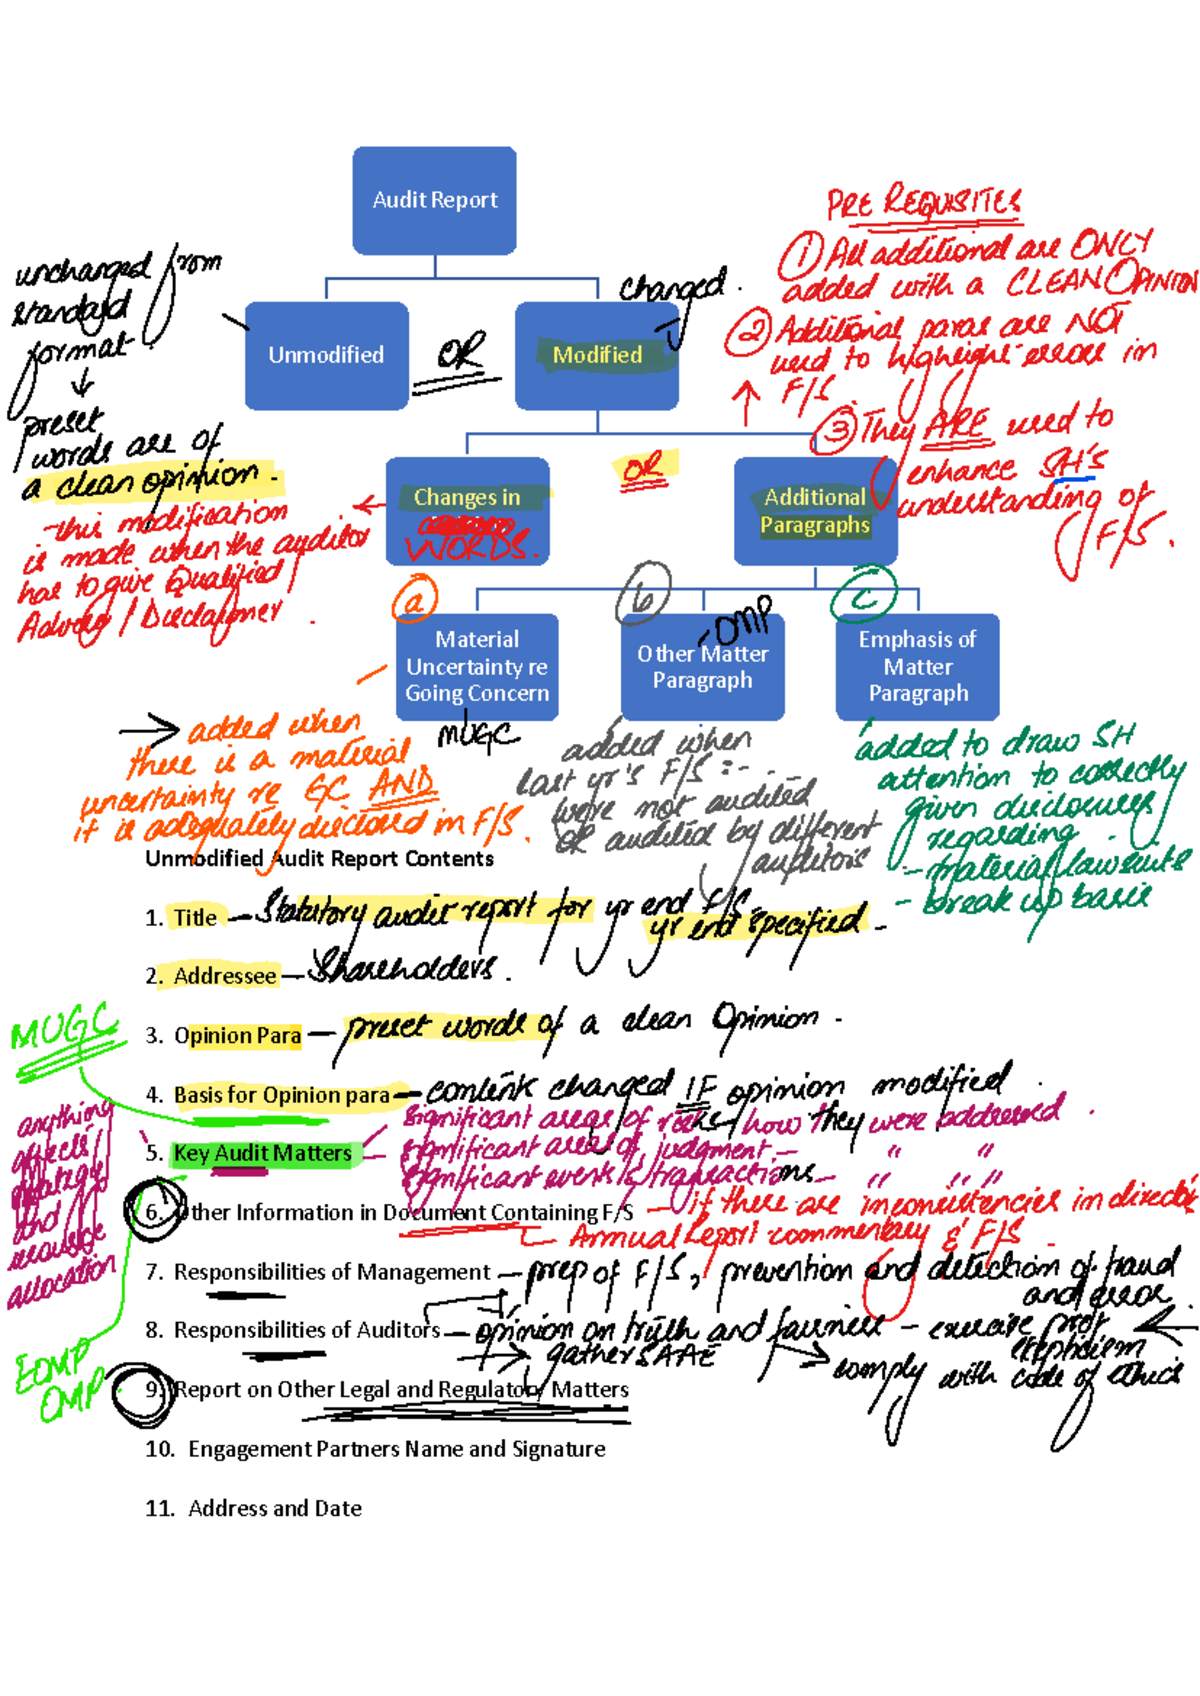 Audit Report
PRE REQUISITES
① All additional are ONLY
added with a CLEAN OPINION
② Additional paras are NOT
used to highlight errors in
F/S.
③ They ARE used to
enhance SH's
understanding of
F/S.
unchanged from
standard
format
↓
preset
words are of
a clean opinion.
Unmodified
OR
Modified
changed.
Changes in
WORDS.
OR
Additional
Paragraphs
- this modification
is made when the auditor
has to give Qualified
Adverse / Disclaimer.
a
Material
Uncertainty re
Going Concern
MUGC
b
Other Matter
Paragraph
- OMP
c
Emphasis of
Matter
Paragraph
→ added when
there is a material
uncertainty re GC AND
it is adequately disclosed in F/S.
added when
last yr's F/S :-
were not audited
OR audited by different
auditors
added to draw SH
attention to correctly
given disclosures
regarding.
- material lawsuits
- break up basis
Unmodified Audit Report Contents
1. Title — Statutory audit report for yr end F/S.
yr end specified -
2. Addressee — Shareholders.
3. Opinion Para — preset words of a clean Opinion -
MUGC
4. Basis for Opinion para — content changed IF opinion modified.
5. Key Audit Matters — significant areas of risks / how they were addressed.
significant areas of judgment - " "
significant events & transactions - " " "
anything
affects
strategy
and
resource
allocation
6. Other Information in Document Containing F/S — if there are inconsistencies in director
Annual Report commentary & F/S -
7. Responsibilities of Management — prep of F/S, prevention and detection of fraud
and error
8. Responsibilities of Auditors — opinion on truth and fairness - exercise prof
skepticism
→ gather SAAE
comply with code of ethics
EOMP
OMP
9. Report on Other Legal and Regulatory Matters
10. Engagement Partners Name and Signature
11. Address and Date